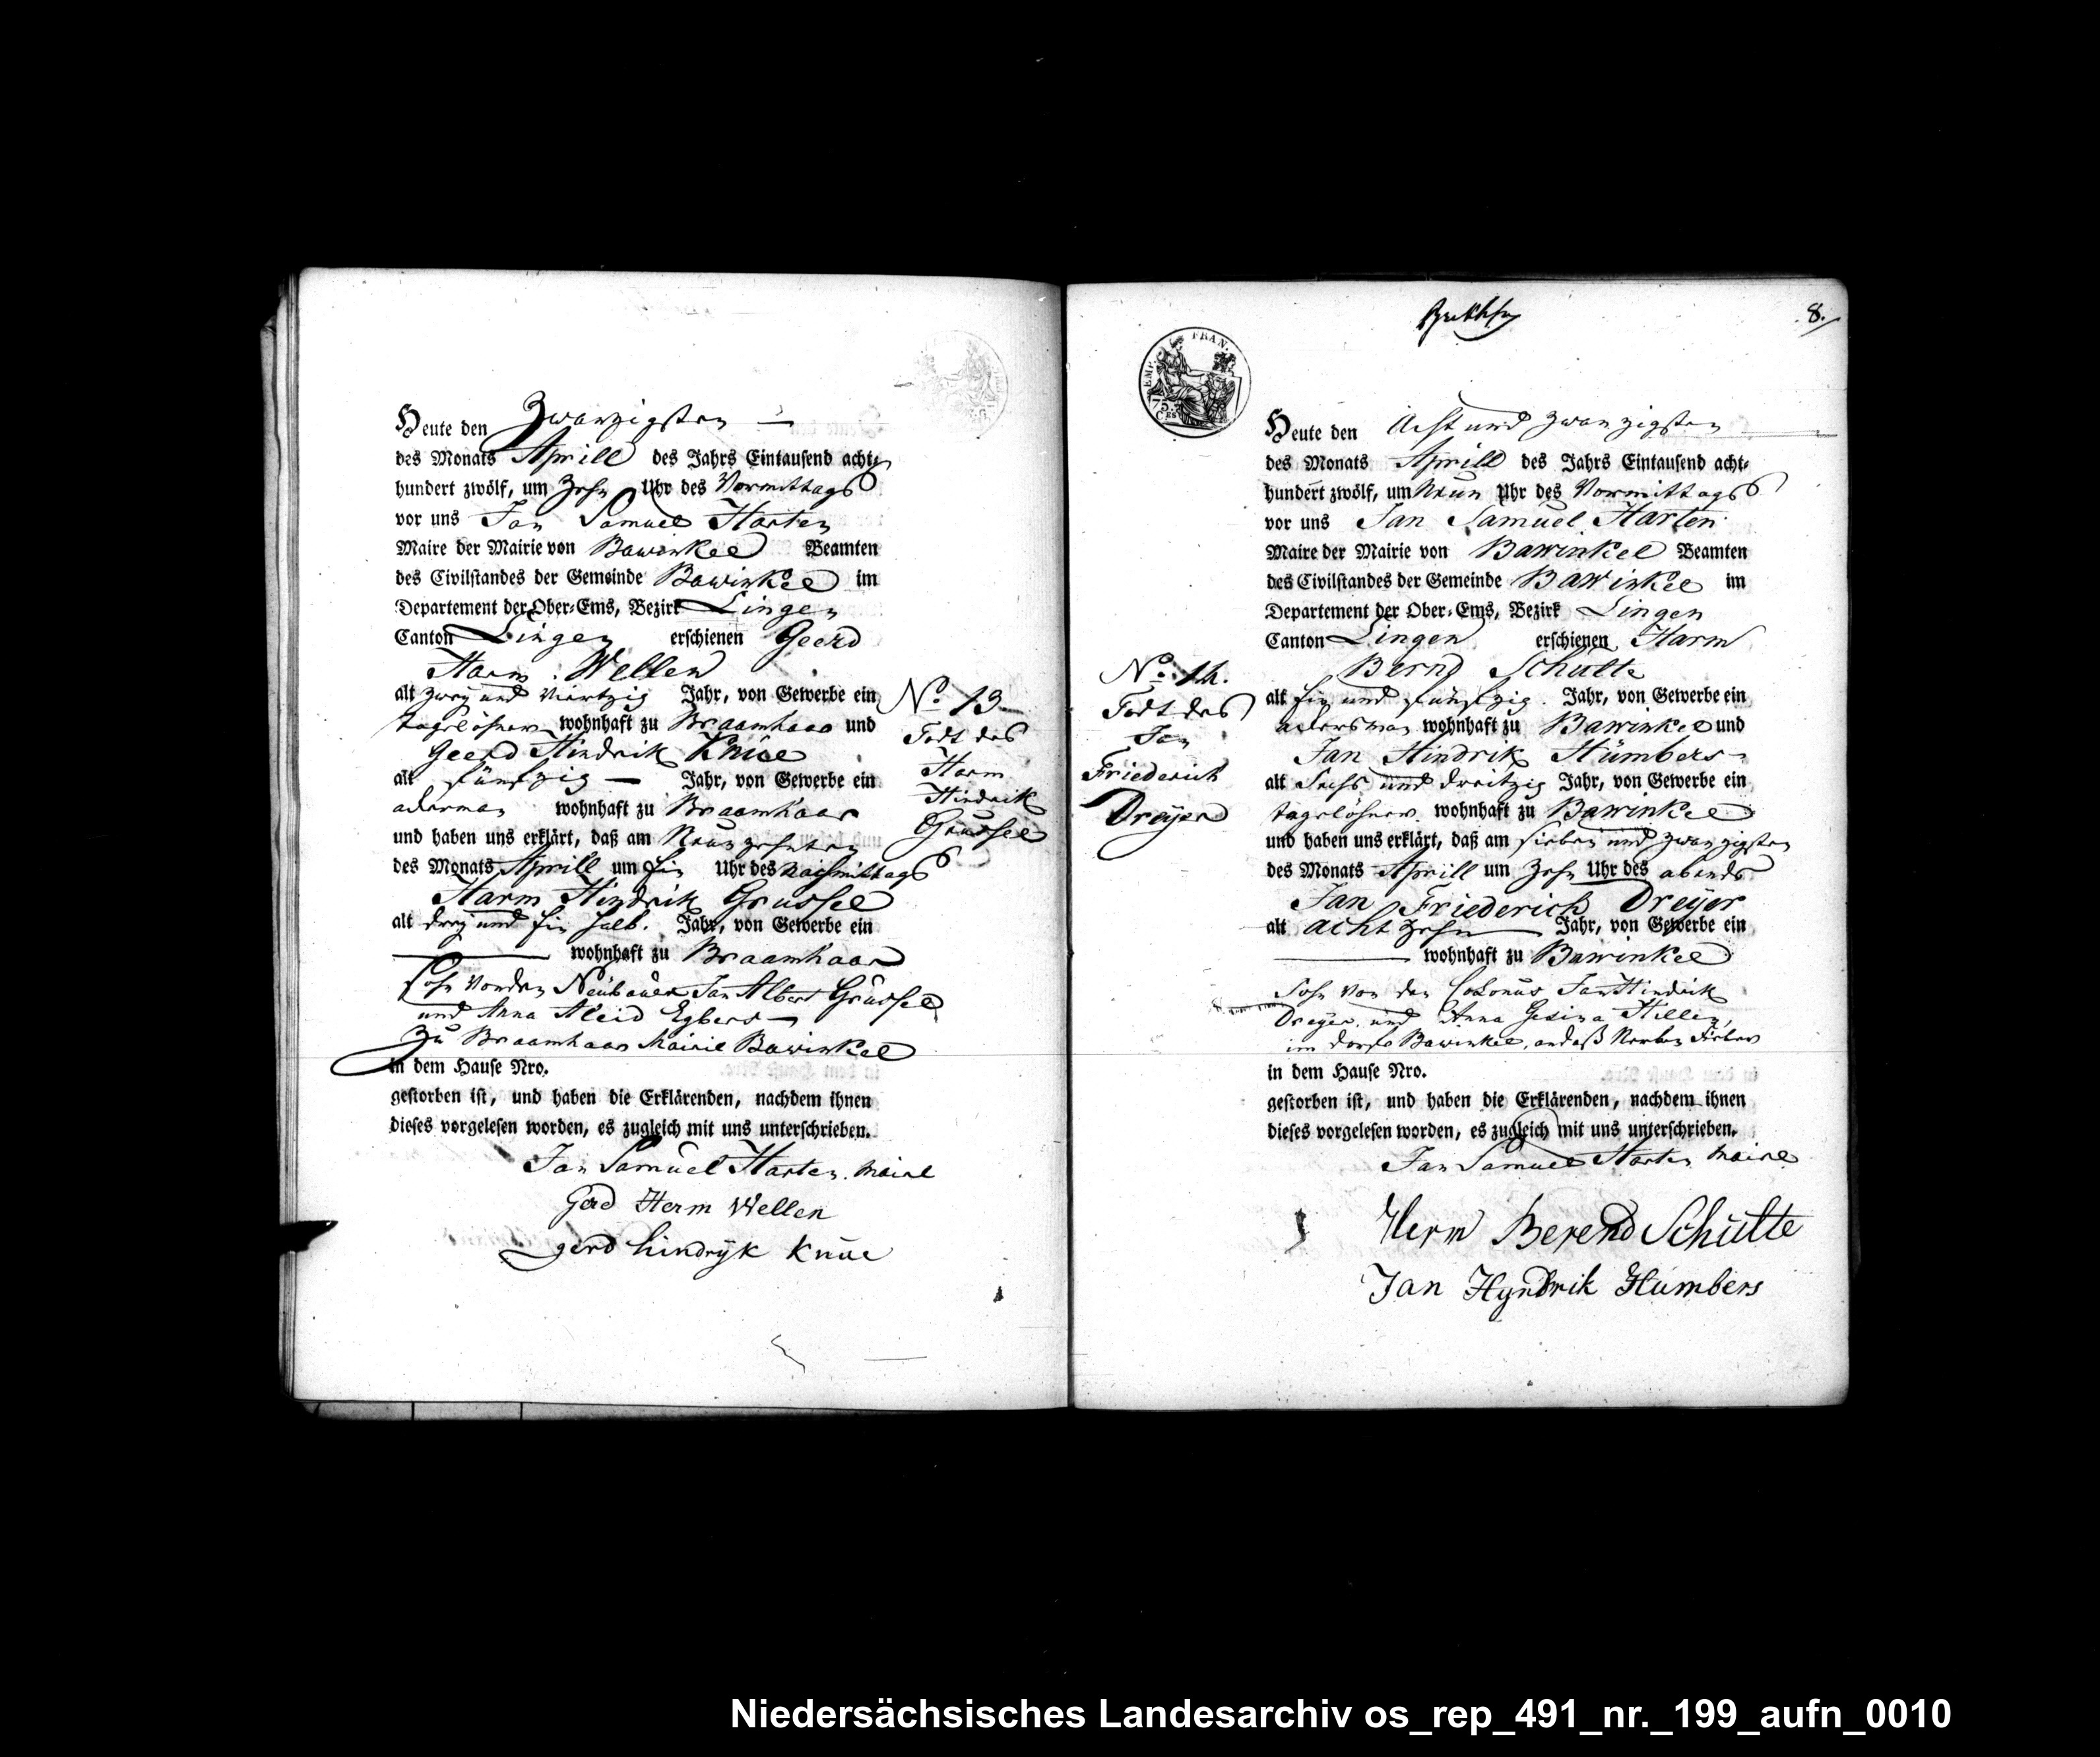 Heute den Zwanzigsten —
des Monats Aprill des Jahrs Eintausend acht-
hundert zwölf, um Zehn Uhr des Vormittags
vor uns Jan Samuel Harten
Maire der Mairie von Bawinkel Beamten
des Civilstandes der Gemeinde Bawinkel im
Departement der Ober-Ems, Bezirk Lingen
Canton Lingen erschienen Geerd
Harm Wellen
alt zwey und Viertzig Jahr, von Gewerbe ein
tagelöhner wohnhaft zu Braamhaar und
Geerd Hindrik Knüe
alt fünfzig — Jahr, von Gewerbe ein
ackerman wohnhaft zu Braamhaar
und haben uns erklärt, daß am Neunzehnten
des Monats Aprill um Ein Uhr des Nachmittags
Harm Hindrik Grüssel
alt drey und Ein halb. Jahr, von Gewerbe ein
— wohnhaft zu Braamhaar
Sohn Von den Neubauer Jan Albert Grüssel
und Anna Aleid Egbers —
Zu Braamhaar Mairie Bawinkel
in dem Hause Nro.
gestorben ist, und haben die Erklärenden, nachdem ihnen
dieses vorgelesen worden, es zugleich mit uns unterschrieben.
Jan Samuel Harten. Maire
Gerd Herm Wellen
gerd hindryk Knüe
No 13
Todt des
Harm
Hindrik
Grüssel
8.
EMP. FRAN.
75.
CES
Heute den Acht und zwanzigsten
des Monats Aprill des Jahrs Eintausend acht-
hundert zwölf, um Neun Uhr des Vormittags
vor uns Jan Samuel Harten
Maire der Mairie von Bawinkel Beamten
des Civilstandes der Gemeinde Bawinkel im
Departement der Ober-Ems, Bezirk Lingen
Canton Lingen erschienen Harm
Bernd Schulte
alt Ein und fünfzig. Jahr, von Gewerbe ein
ackersman wohnhaft zu Bawinkel und
Jan Hindrik Hümbers
alt Sechs und dreitzig Jahr, von Gewerbe ein
tagelöhner. wohnhaft zu Bawinkel
und haben uns erklärt, daß am sieben und zwanzigsten
des Monats Aprill um Zehn Uhr des abends
Jan Friederich Dreÿer
alt achtzehn — Jahr, von Gewerbe ein
— wohnhaft zu Bawinkel
Sohn Von den Colonus Jan Hindrik
Dreÿer. und Anna Gesina Hillen,
im dorfe Bawinkel, Nerven Fieber
in dem Hause Nro.
gestorben ist, und haben die Erklärenden, nachdem ihnen
dieses vorgelesen worden, es zugleich mit uns unterschrieben.
Jan Samuel Harten Maire
Herm Berend Schulte
Jan Hyndrik Humbers
No. 14.
Todt des
Jan
Friederich
Dreÿer
Niedersächsisches Landesarchiv os_rep_491_nr._199_aufn_0010